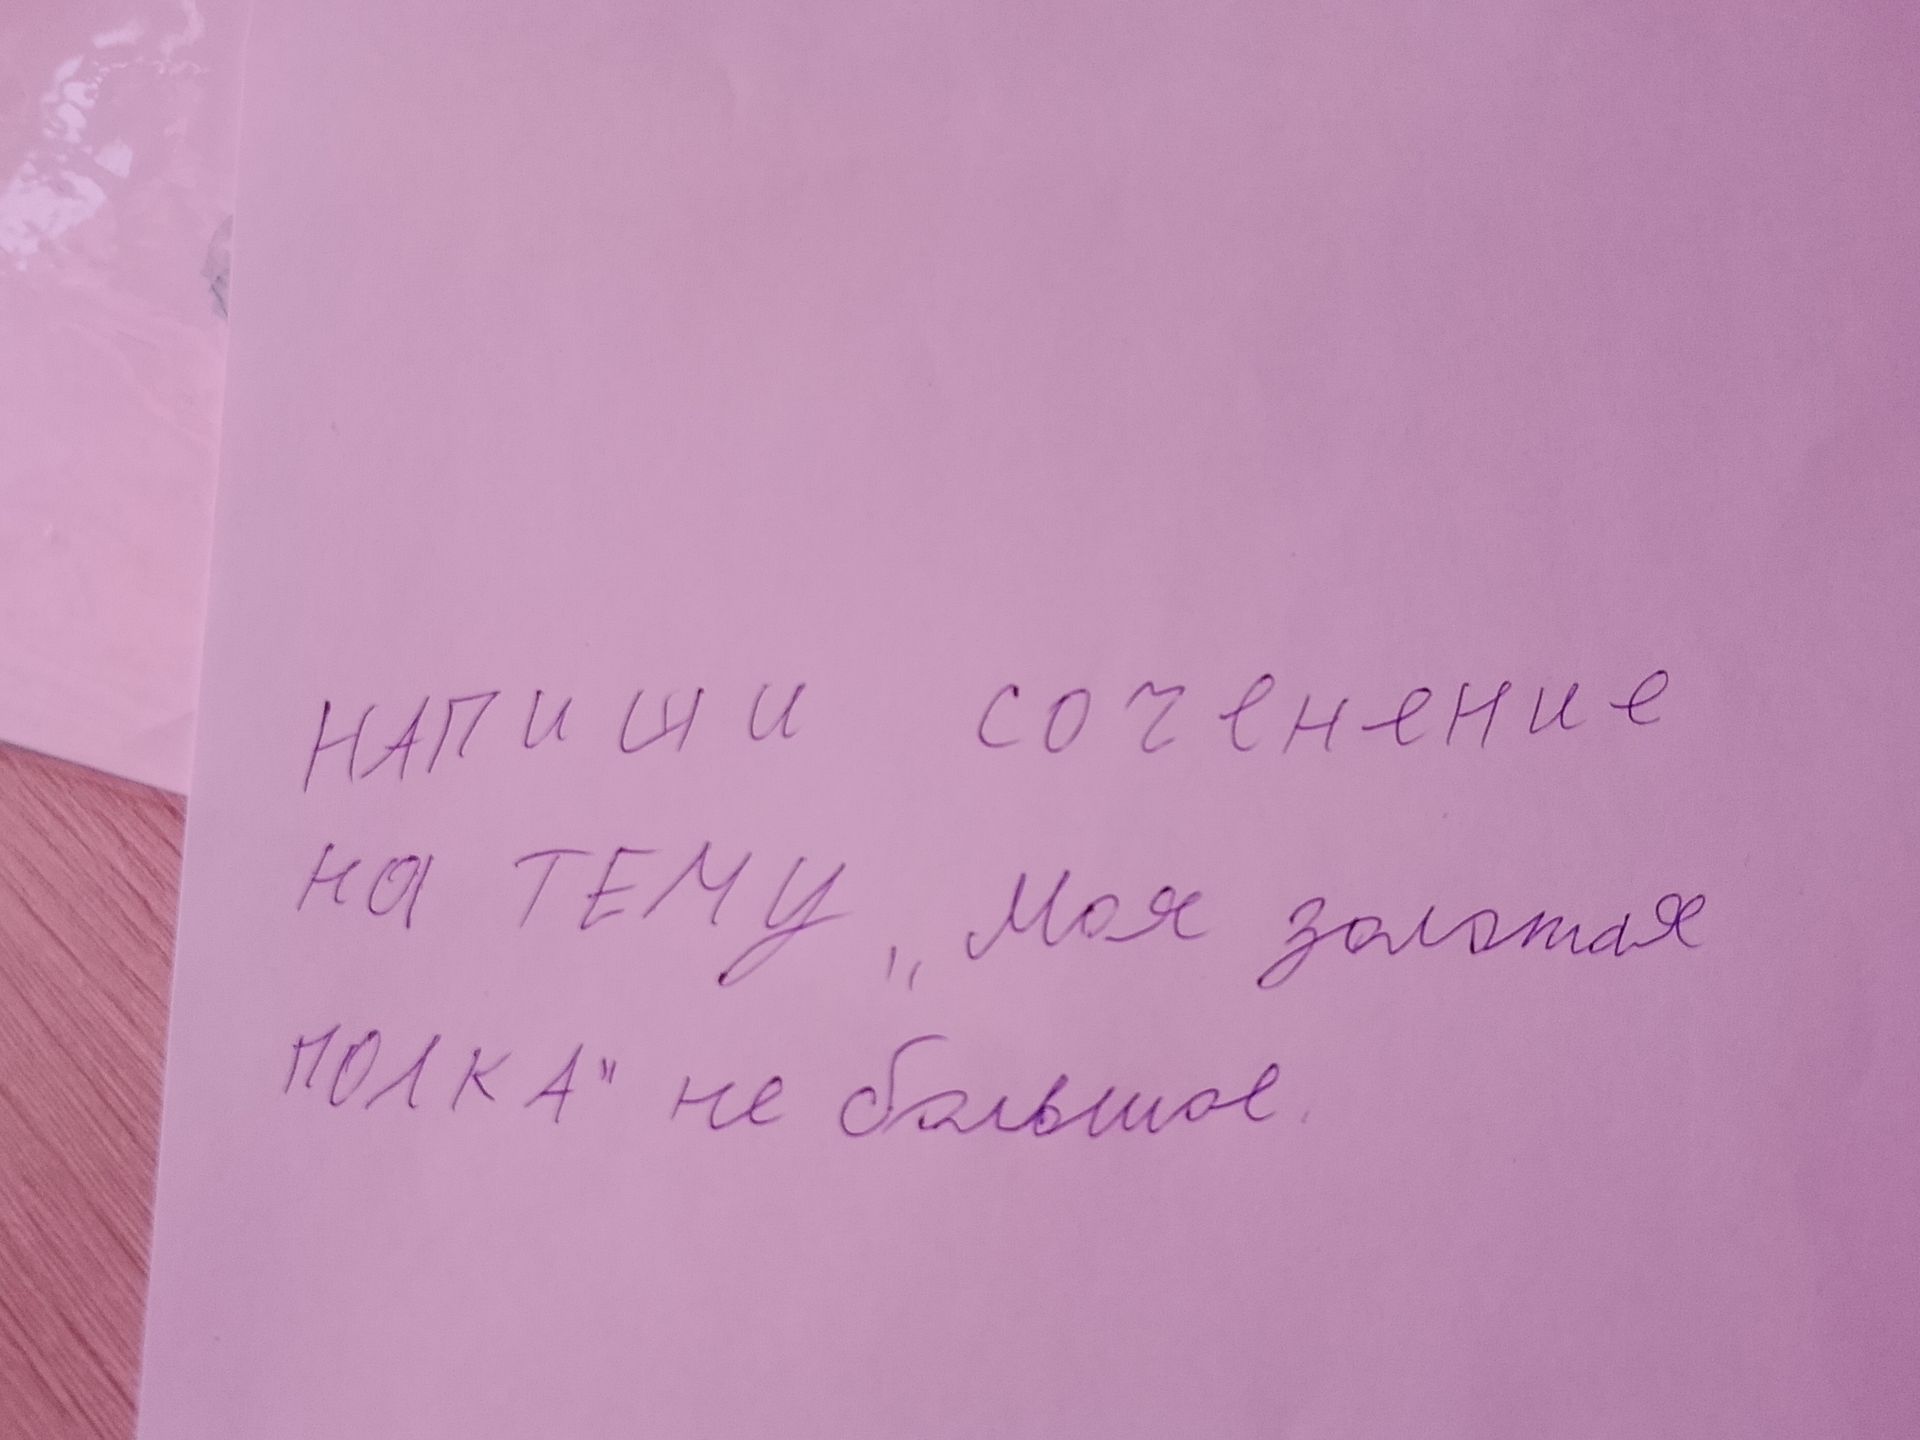 НАПиши соченение
на ТЕМУ „Моя золотая
ПОЛКА" не большое.